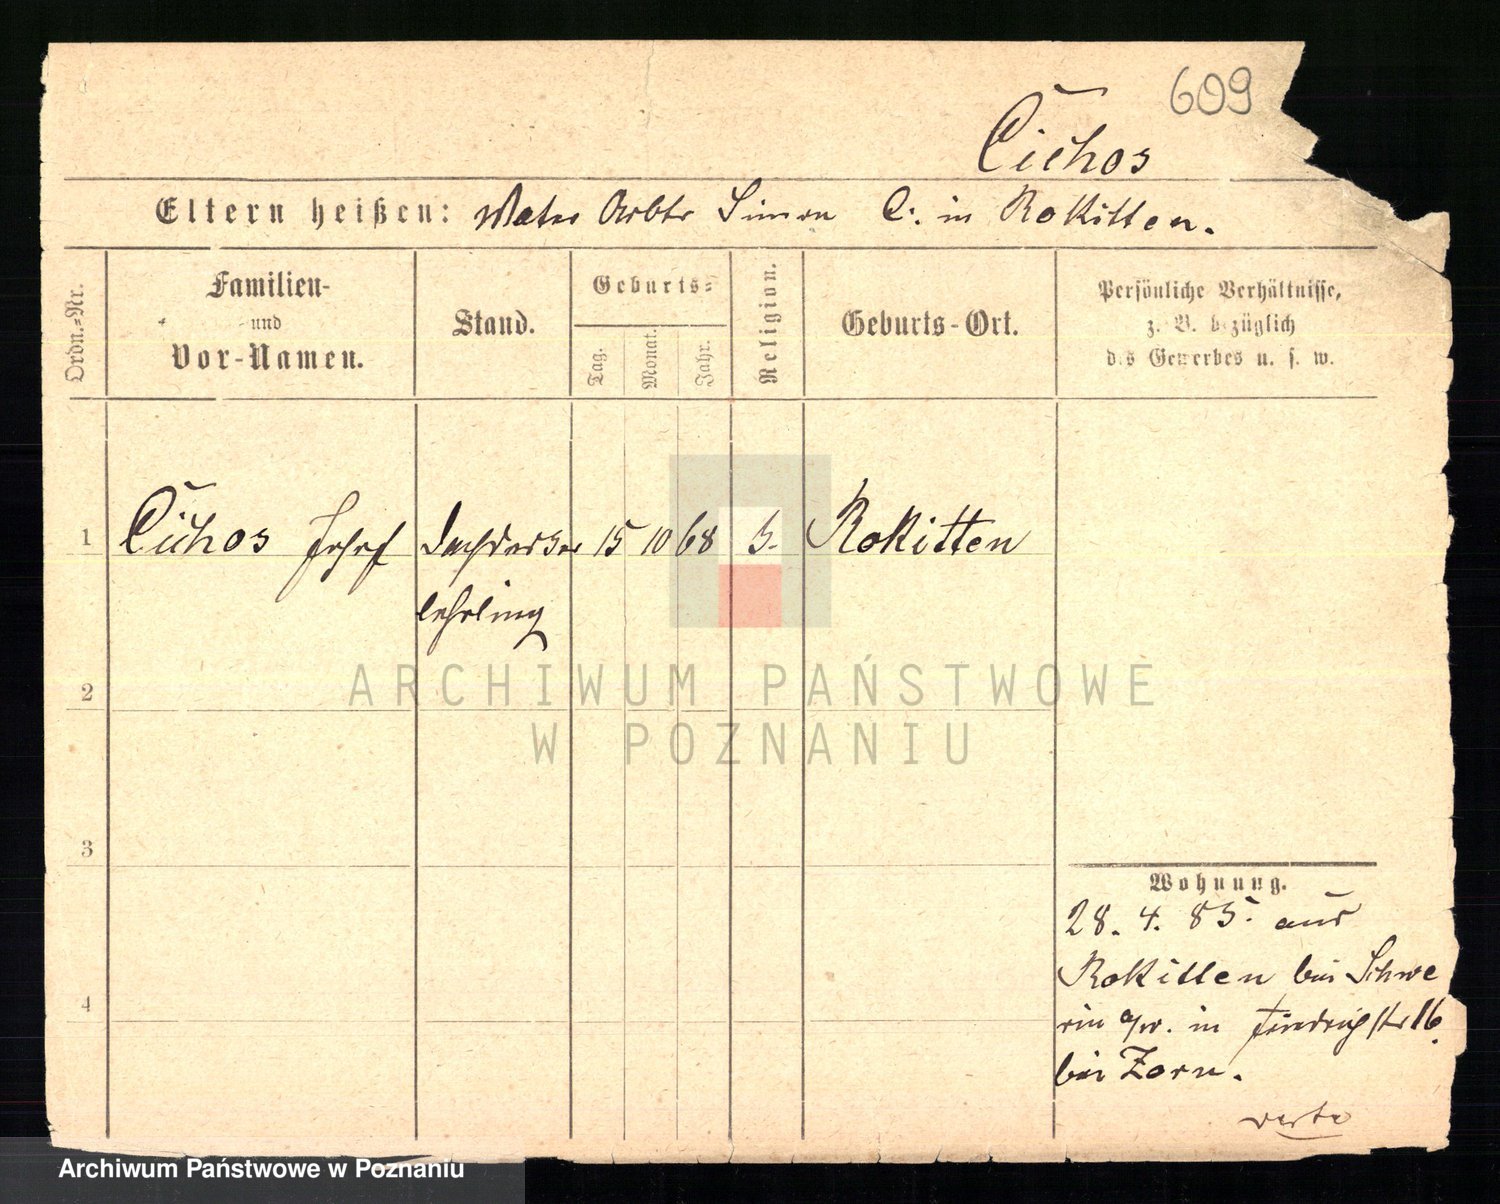 609
Cichos
Eltern heißen: Vater Arbtr Simon C. in Rokitten.
Ordn.=Nr.
Familien-
und
Vor-Namen.
Stand.
Geburts=
Tag.
Monat.
Jahr.
Religion.
Geburts-Ort.
Persönliche Verhältnisse,
z. B. bezüglich
des Gewerbes u. s. w.
1 Cichos Josef Dachdecker 15 10 68 Rokitten
lehrling
2
3
4
Wohnung.
28. 4. 85. aus
Rokitten bei Schwe
rin a/w. in Friedrichstr 16.
bei Zorn.
verte
ARCHIWUM PAŃSTWOWE
W POZNANIU
Archiwum Państwowe w Poznaniu